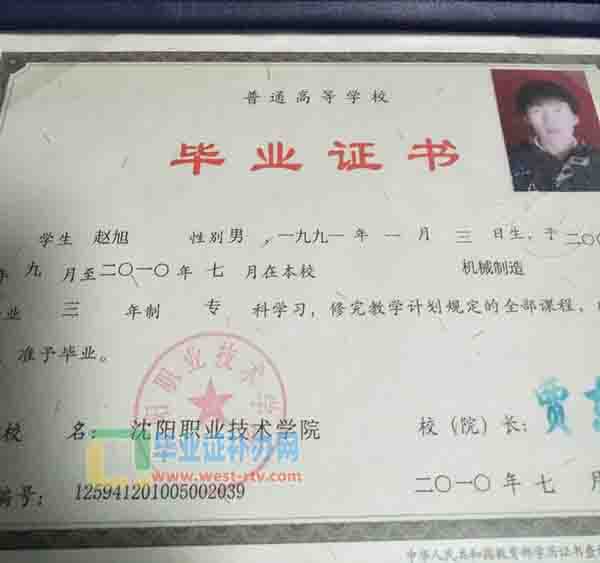 普通高等学校
毕业证书
学生 赵旭 性别 男 ,一九九一年 一 月 三 日生,于 二〇〇
年 九 月至二〇一〇年 七 月在本校 机械制造
业 三 年制 专 科学习,修完教学计划规定的全部课程,
准予毕业。
阳职业技术学
校 名: 沈阳职业技术学院 校(院)长: 贾
毕业证补办网
www.west-rtv.com
编号: 125941201005002039 二〇一〇年 七 月
中华人民共和国教育部学历证书查